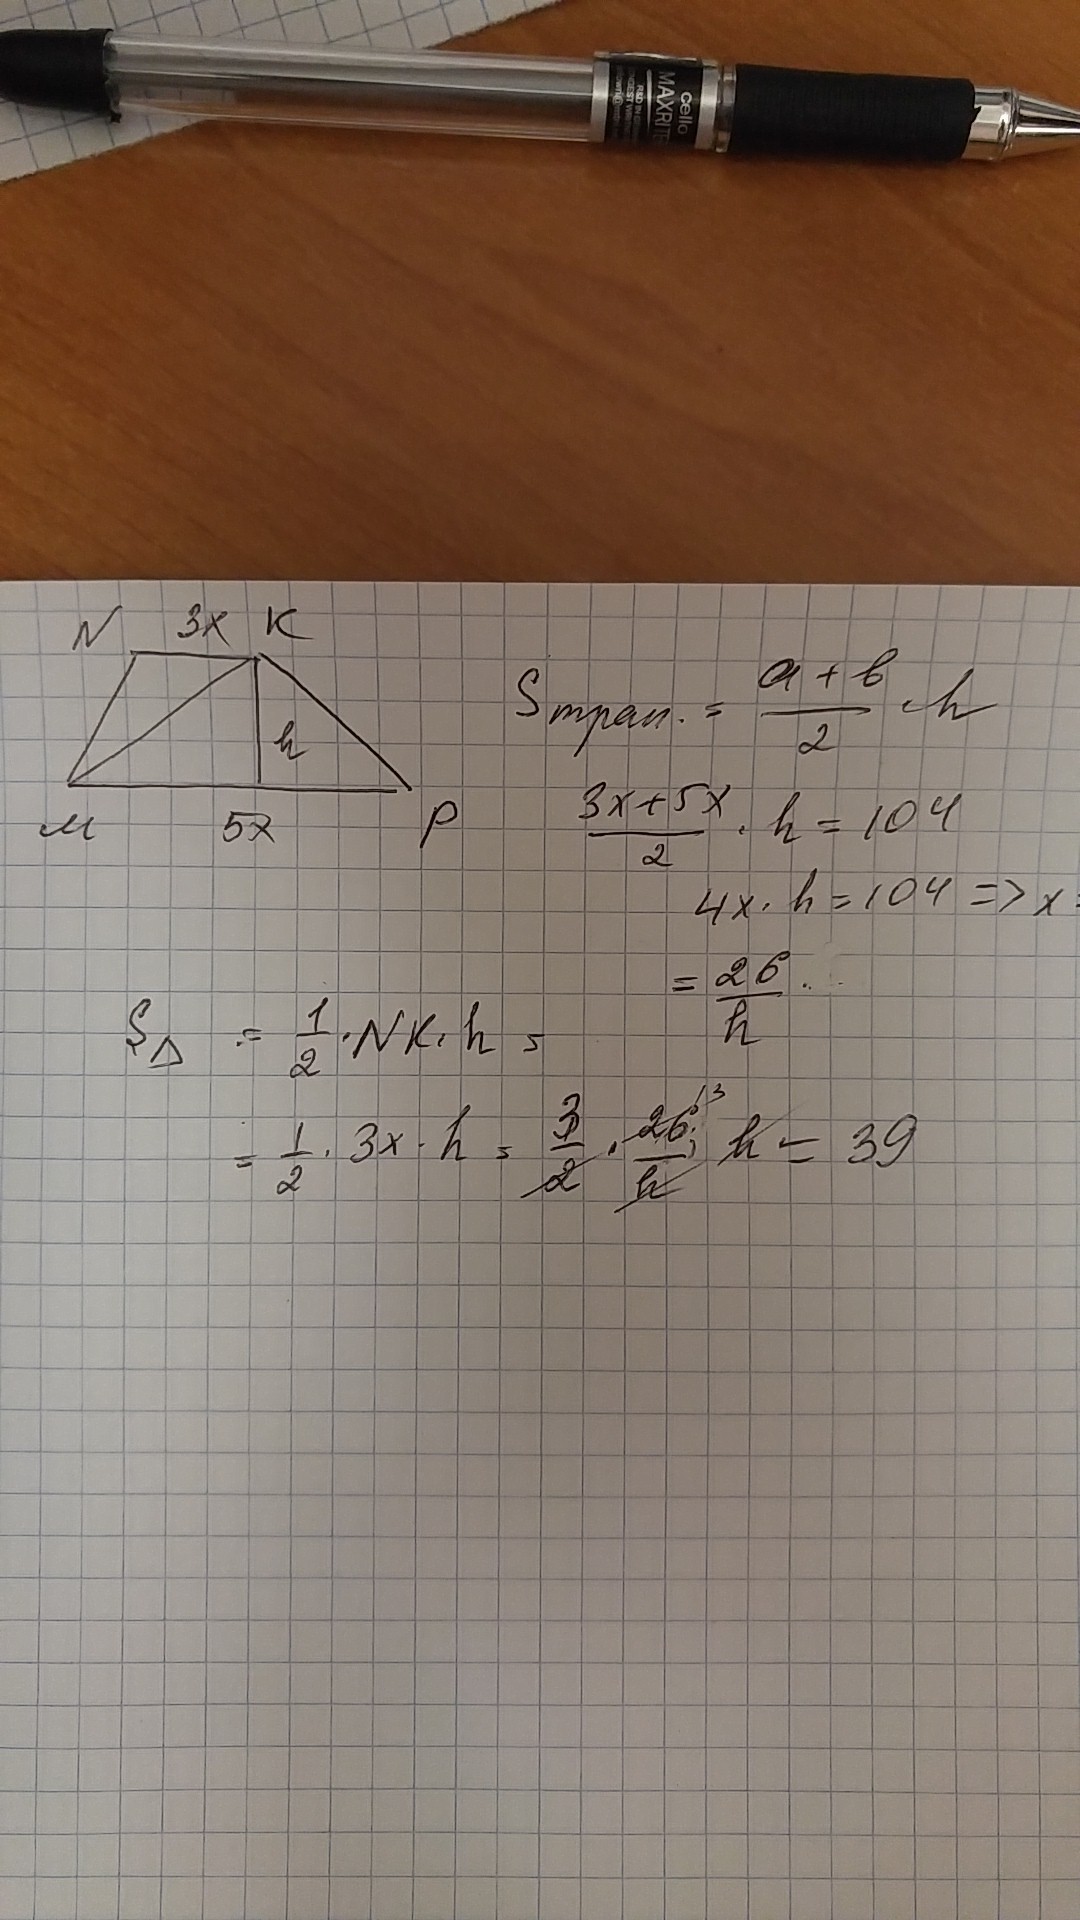 cello
MAXRITE
N 3x K
h
M 5x P
Sтрап. = a + b / 2 · h
3x + 5x / 2 · h = 104
4x · h = 104 => x =
= 26 / h
S△ = 1/2 · NK · h =
= 1/2 · 3x · h = 3/2 · 26 13 / h · h = 39